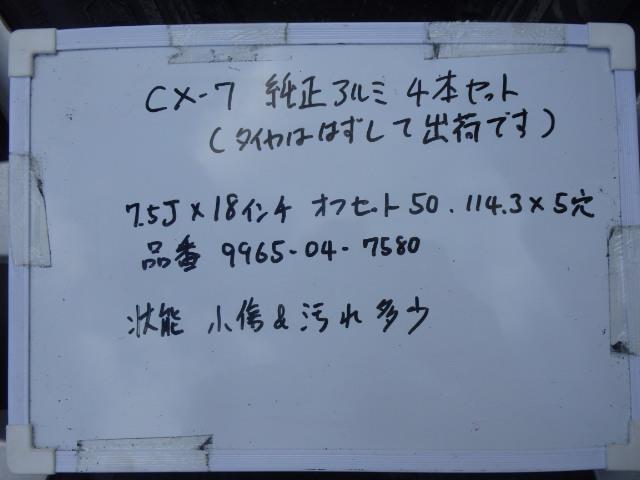 CX-7 純正アルミ 4本セット
(タイヤははずして出荷です)
7.5J×18インチ オフセット50. 114.3×5穴
品番 9965-04-7580
状能 小傷&汚れ多少